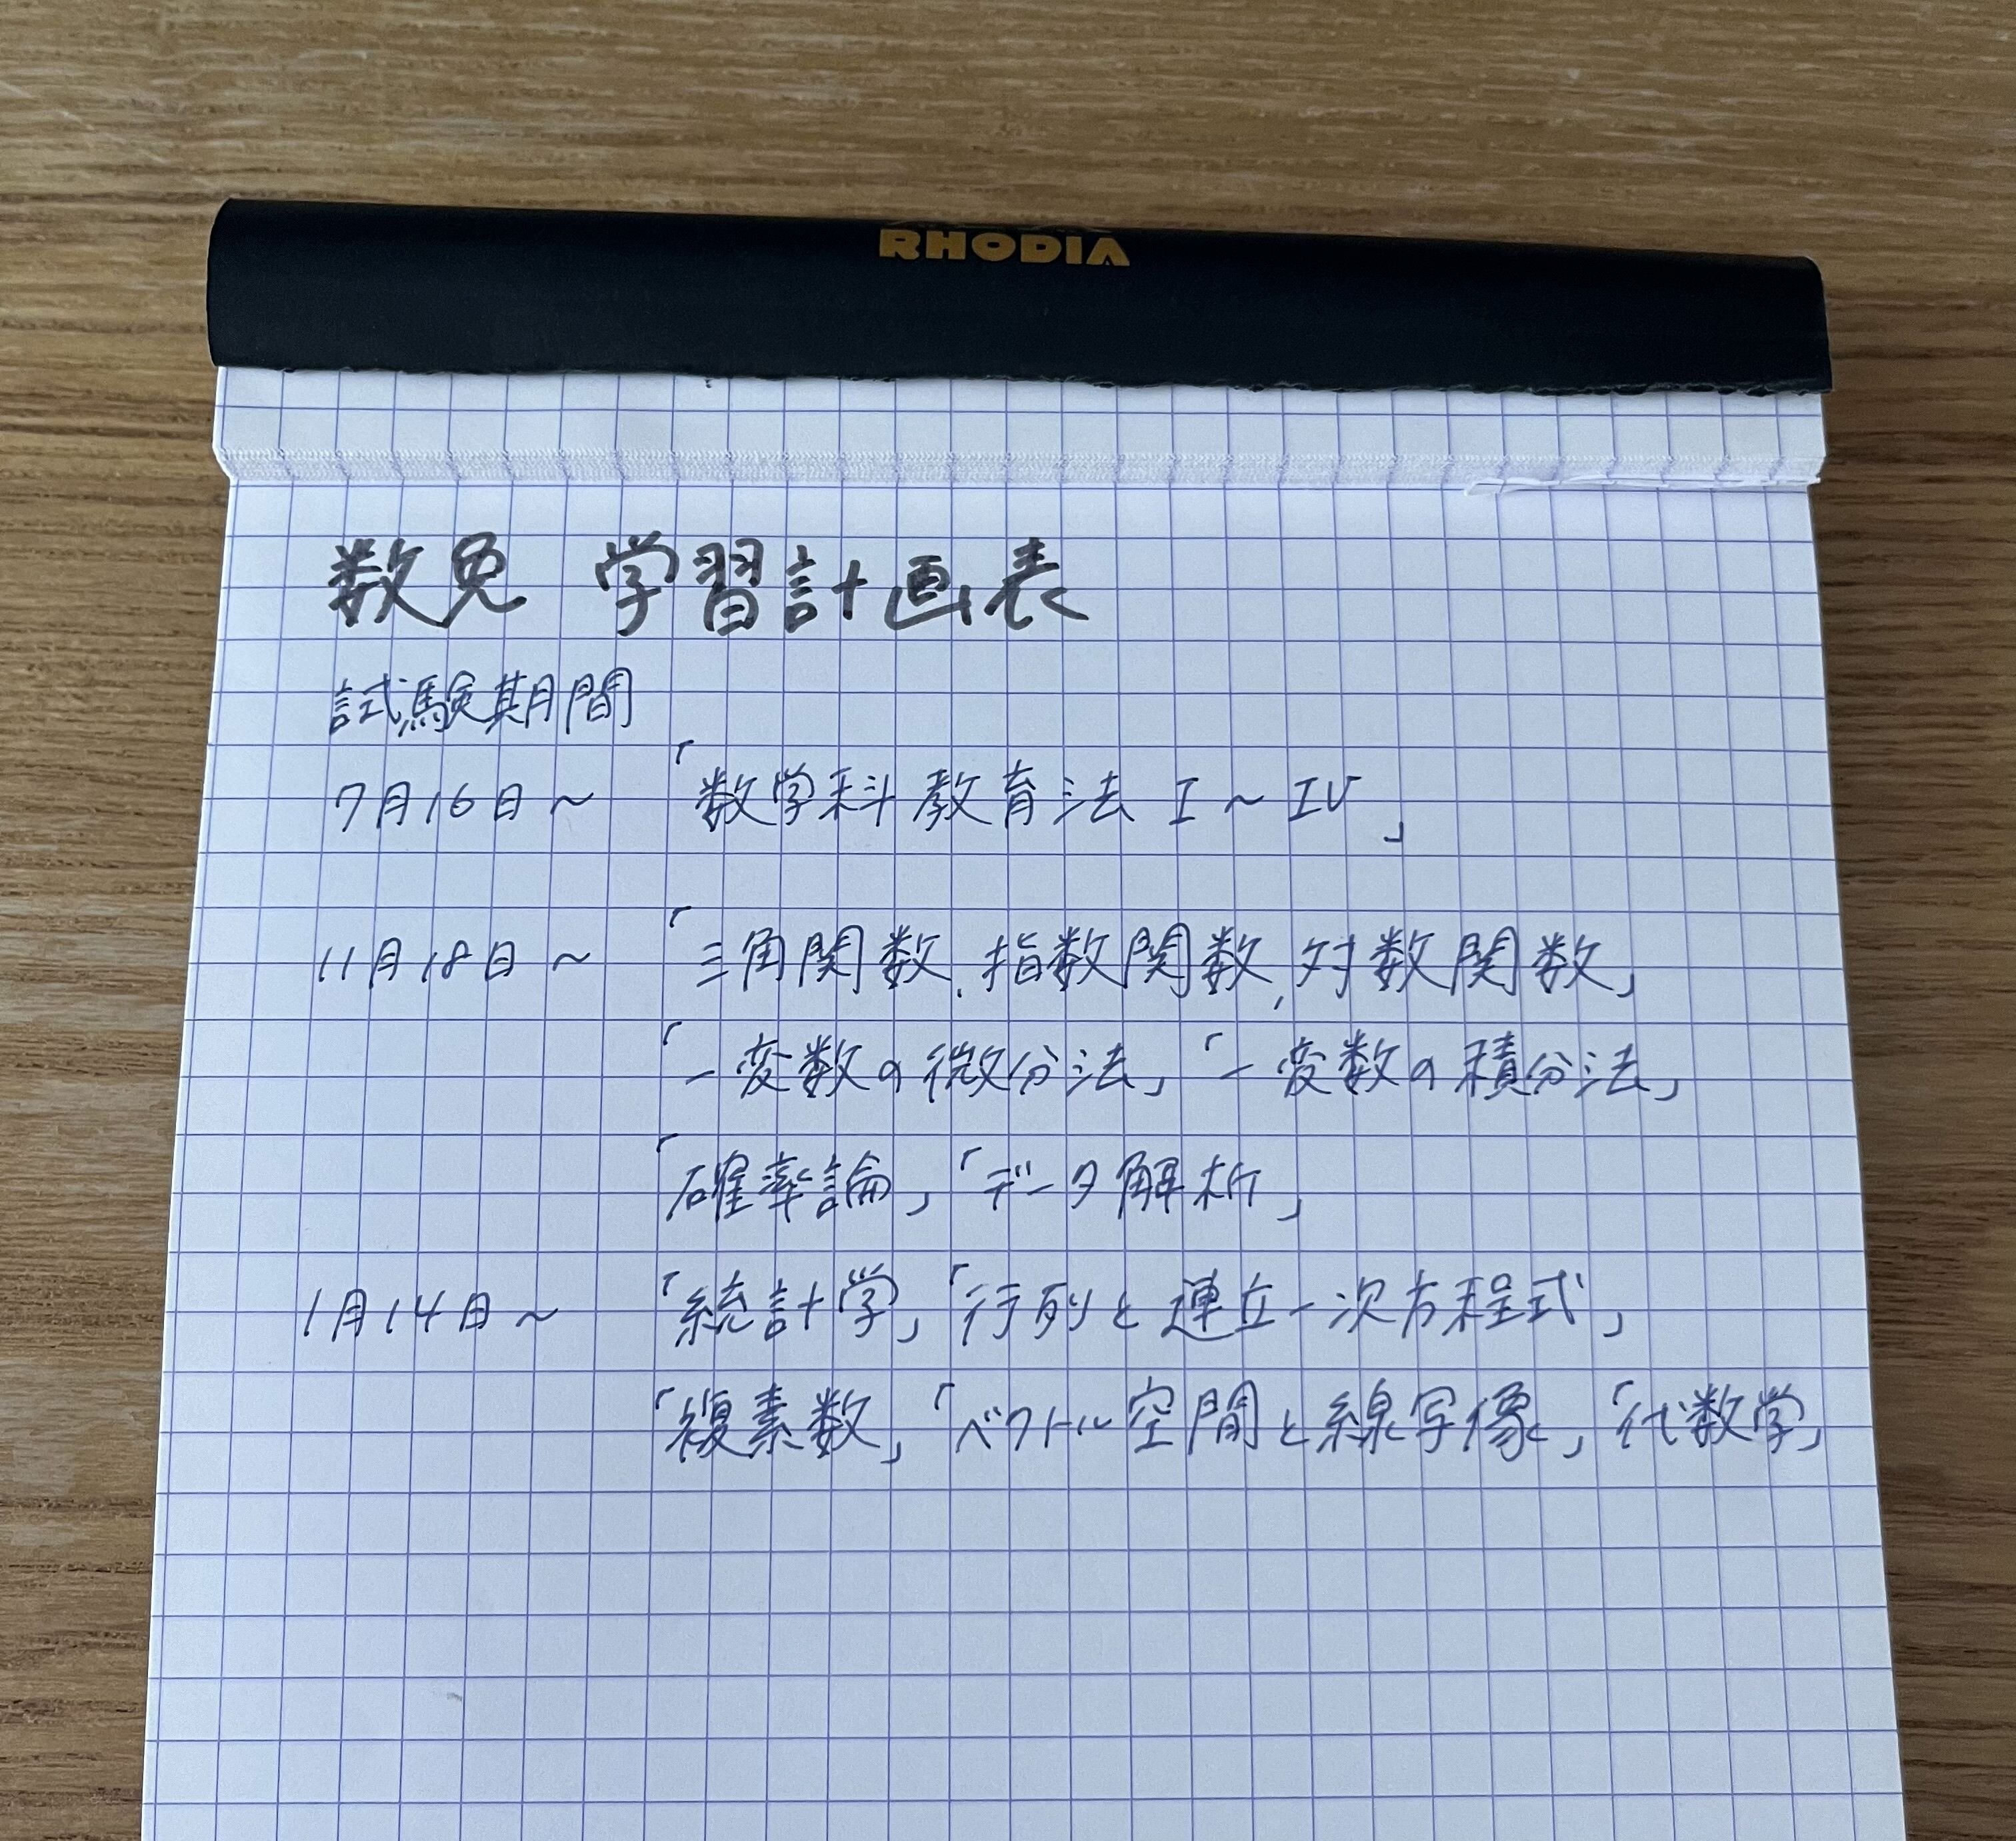 RHODIA
数免 学習計画表
試験期間
7月16日～ 「数学科教育法 I～IV」
11月18日～ 「三角関数、指数関数、対数関数」
「一変数の微分法」「一変数の積分法」
「確率論」「データ解析」
1月14日～ 「統計学」「行列と連立一次方程式」
「複素数」「ベクトル空間と線写像」「代数学」